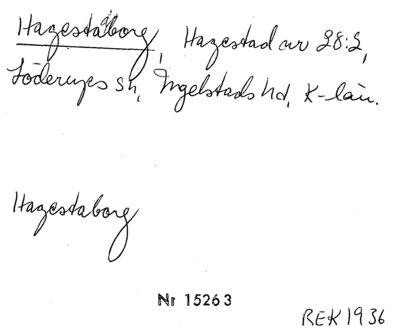 Hagestaborg, Hagestad nr 28:2,
Löderups sn, Ingelstads hd, K-län.
Hagestaborg
Nr 15263
REK 1936